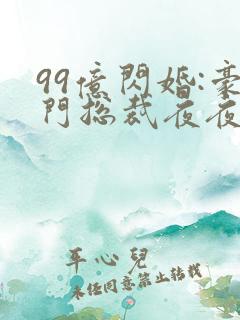 99億閃婚:豪
門總裁夜夜
平心兒
未经同意禁止转载